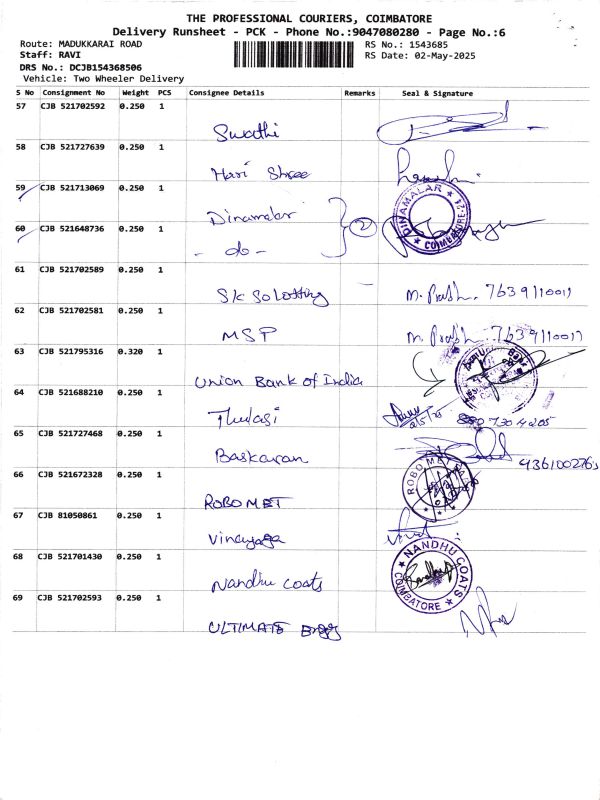 THE PROFESSIONAL COURIERS, COIMBATORE
Delivery Runsheet - PCK - Phone No.:9047080280 - Page No.:6
Route: MADUKKARAI ROAD RS No.: 1543685
Staff: RAVI RS Date: 02-May-2025
DRS No.: DCJB154368506
Vehicle: Two Wheeler Delivery
S No Consignment No Weight PCS Consignee Details Remarks Seal & Signature
57 CJB 521702592 0.250 1
Swathi
58 CJB 521727639 0.250 1
Hari Shree
59 CJB 521713069 0.250 1
Dinamalar
DINAMALAR COIMBATORE
60 CJB 521648736 0.250 1
- do - 2
61 CJB 521702589 0.250 1
M. 7639110017
62 CJB 521702581 0.250 1
MSP M. 7639110017
63 CJB 521795316 0.320 1
Union Bank of India
64 CJB 521688210 0.250 1
Thulasi 2/5/25
65 CJB 521727468 0.250 1
Baskaran
66 CJB 521672328 0.250 1
ROBOMET ROBO MET
67 CJB 81050861 0.250 1
Vinayaga
68 CJB 521701430 0.250 1
Nandhu coats NANDHU COATS COIMBATORE
69 CJB 521702593 0.250 1
ULTIMATE